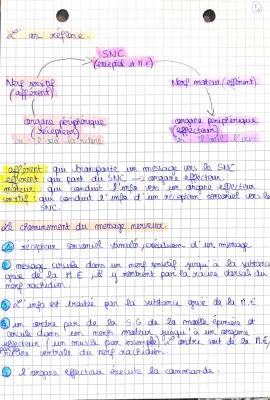 L'arc réflexe.
SNC
(encéphale et M.E)
Nerf sensitif
(afférent)
Nerf moteur (efférent)
organe périphérique
(récepteur)
organe périphérique
(effecteur)
afférent: qui transporte un message vers le SNC
efférent: qui part du SNC → organe effecteur
moteur: qui conduit l'info vers un organe effecteur
sensitif: qui conduit l'info d'un récepteur sensoriel vers le
SNC.
Le cheminement du message nerveux.
1 récepteur sensoriel stimulé, création d'un message.
2 message circule dans un nerf sensitif jusqu'à la substance
grise de la M.E, il y rentrent par la racine dorsale du
nerf rachidien.
3 L'info est traitée par la substance grise de la M.E
4 un ordre part de la S.G de la moelle épinière et
circule dans un nerf moteur jusqu'à un organe
effecteur (un muscle par exemple). L'ordre sort de la M.E
racine ventrale du nerf rachidien.
5 l'organe effecteur exécute la commande.